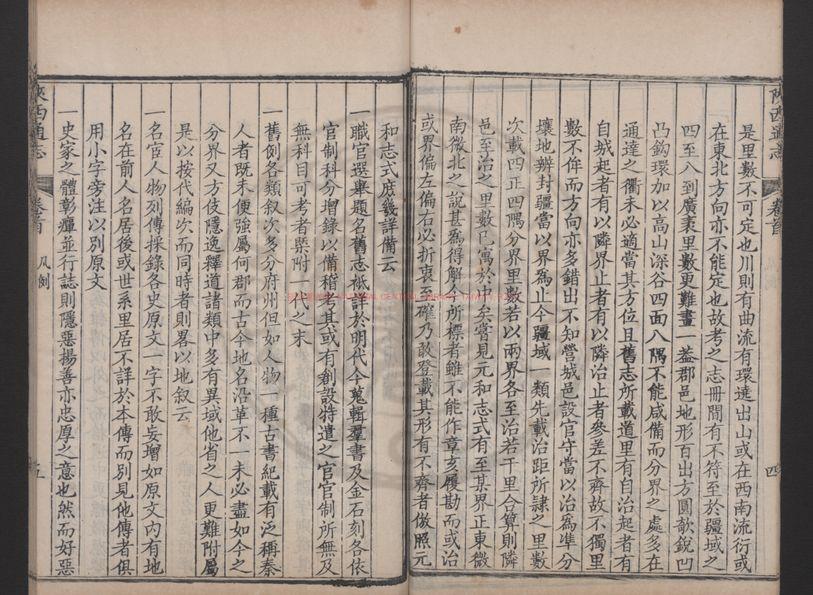 陝西通志
卷首
四
是里數不可定也川則有曲流有環遶出山或在西南流行或
在東北方向亦不能定也故考之志冊間有不符至於疆域之
四至八到廣袤里數更難畫一蓋郡邑地形百出方圓欹銳凹
凸鈎環加以高山深谷四面八隅不能咸備而分界之處多在
通達之衢未必適當其方位且舊志所載道里有自治起者有
自城起者有以隣界止者有以隣治止者參差不齊故不獨里
數不侔而方向亦多錯出不知營城邑設官守當以治為準分
壤地辨封疆當以界為止今疆域一類先載治距所隸之里數
次載四正四隅分界里數若以兩界各至治若干里合算則隣
邑至治之里數已寓於中矣嘗見元和志式有至某界正東微
南微北之說甚為得解今所標者雖不能作章亥履勘而或治
或界偏左偏右必折衷至確乃敢登載其形有不齊者倣照元
和志式庶幾詳備云
一職官選舉題名舊志祗詳於明代今蒐輯羣書及金石刻各依
官制科分增錄以備稽考其或有創設特遣之官官制所無及
無科目可考者槩附一代之末
一舊例各類叙次多分府州但如人物一種古書紀載有泛稱秦
人者既未便強屬何郡而古今地名沿革不一未必盡如今之
分界又方伎隱逸釋道諸類中多有異域他省之人更難附屬
是以按代編次而同時者則畧以地叙云
一名宦人物列傳採錄各史原文一字不敢妄增如原文內有地
名在前人名居後或世系里居不詳於本傳而別見他傳者俱
用小字旁注以別原文
一史家之體彰癉並行誌則隱惡揚善亦忠厚之意也然而好惡
陝西通志
卷首
凡例
五